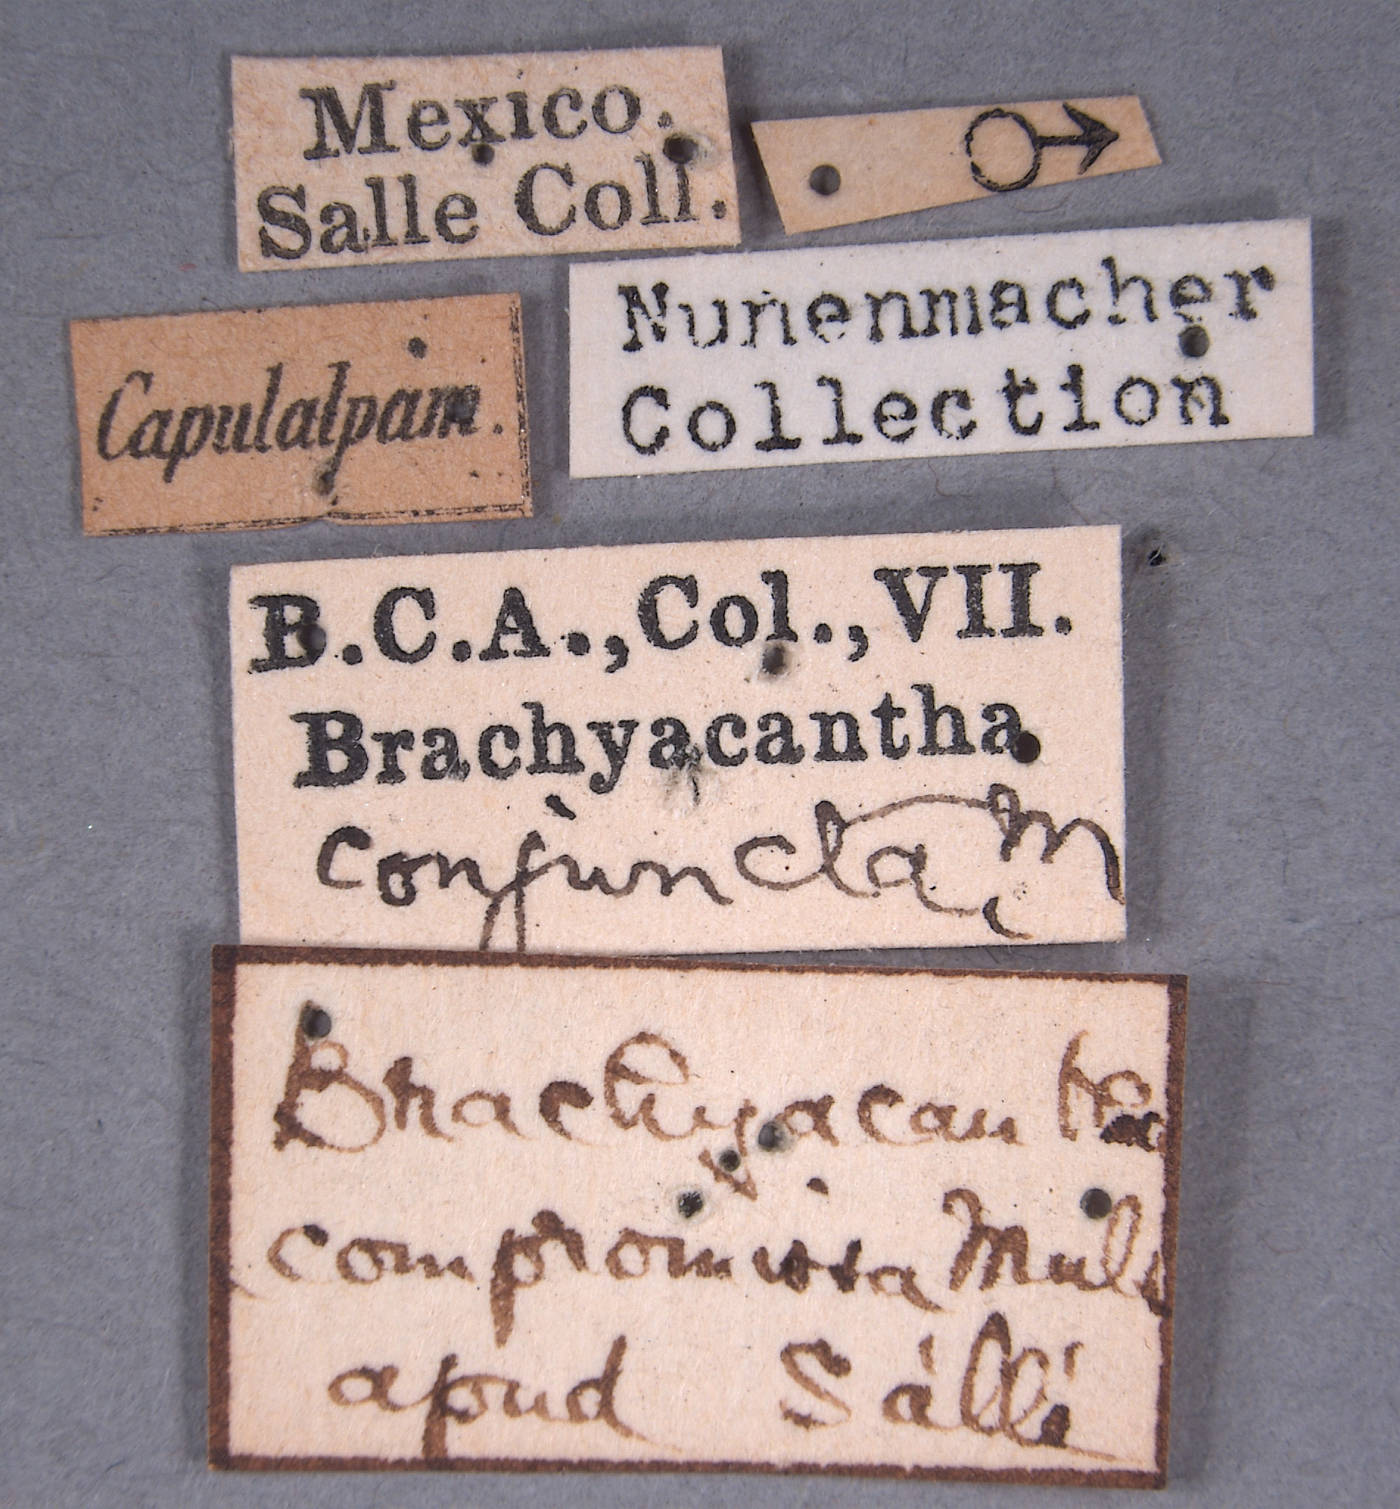 Mexico.
Salle Coll.
♂
Capulalpam.
Nunenmacher
Collection
B.C.A., Col., VII.
Brachyacantha
conjuncta, M
Brachyacantha
compromissa Muls
apud Sállé